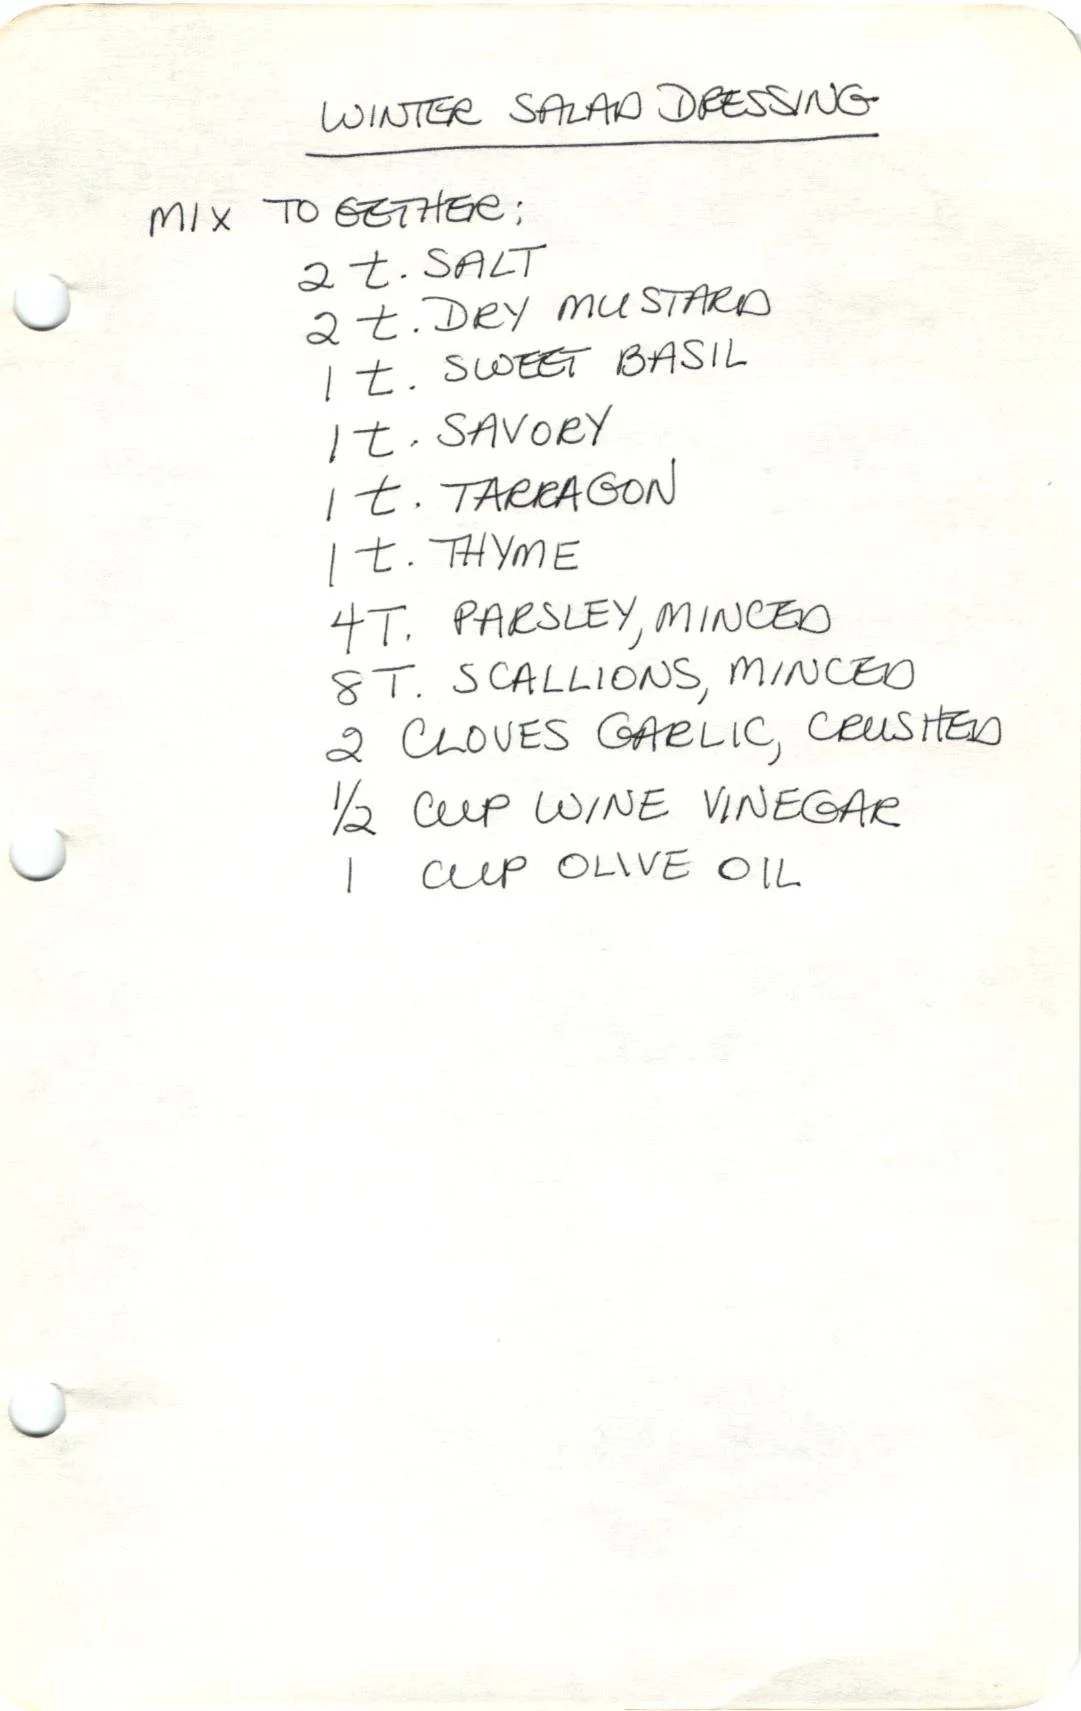 WINTER SALAD DRESSING
MIX TOGETHER:
2 t. SALT
2 t. DRY MUSTARD
1 t. SWEET BASIL
1 t. SAVORY
1 t. TARRAGON
1 t. THYME
4 T. PARSLEY, MINCED
8 T. SCALLIONS, MINCED
2 CLOVES GARLIC, CRUSHED
1/2 CUP WINE VINEGAR
1 CUP OLIVE OIL